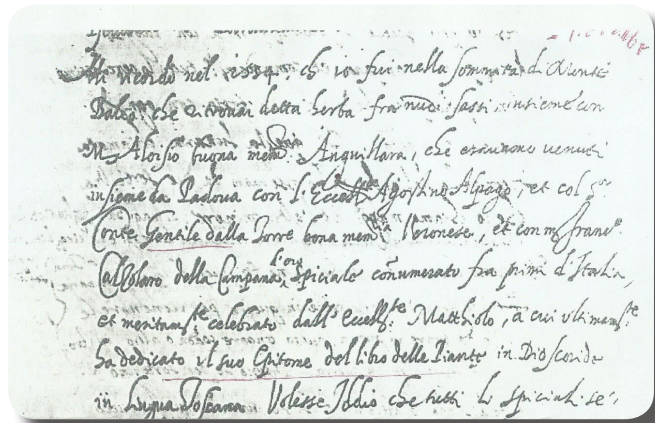 nel 1554. ch' io fui nella sommità di Monte
Baldo, che trovai detta herba fra nudi sassi, insieme con
M. Aloisio buona mem.ria Anguillara, che eravamo venuti
insieme da Padoua con l'Eccell.te Agostino Alpago, et col S.or
Conte Gentile dalla Torre bona mem.ria Veronese, et con m. Franc.o
Calzolaro della Campana d'oro, speciale connumerato fra primi d'Italia,
et meritam.te celebrato dall' Eccell.te Matthiolo, a cui ultimam.te
ha dedicato il suo Epitome del libro delle Piante in Dioscoride
in lingua Toscana Volesse Iddio che tutti li speciali